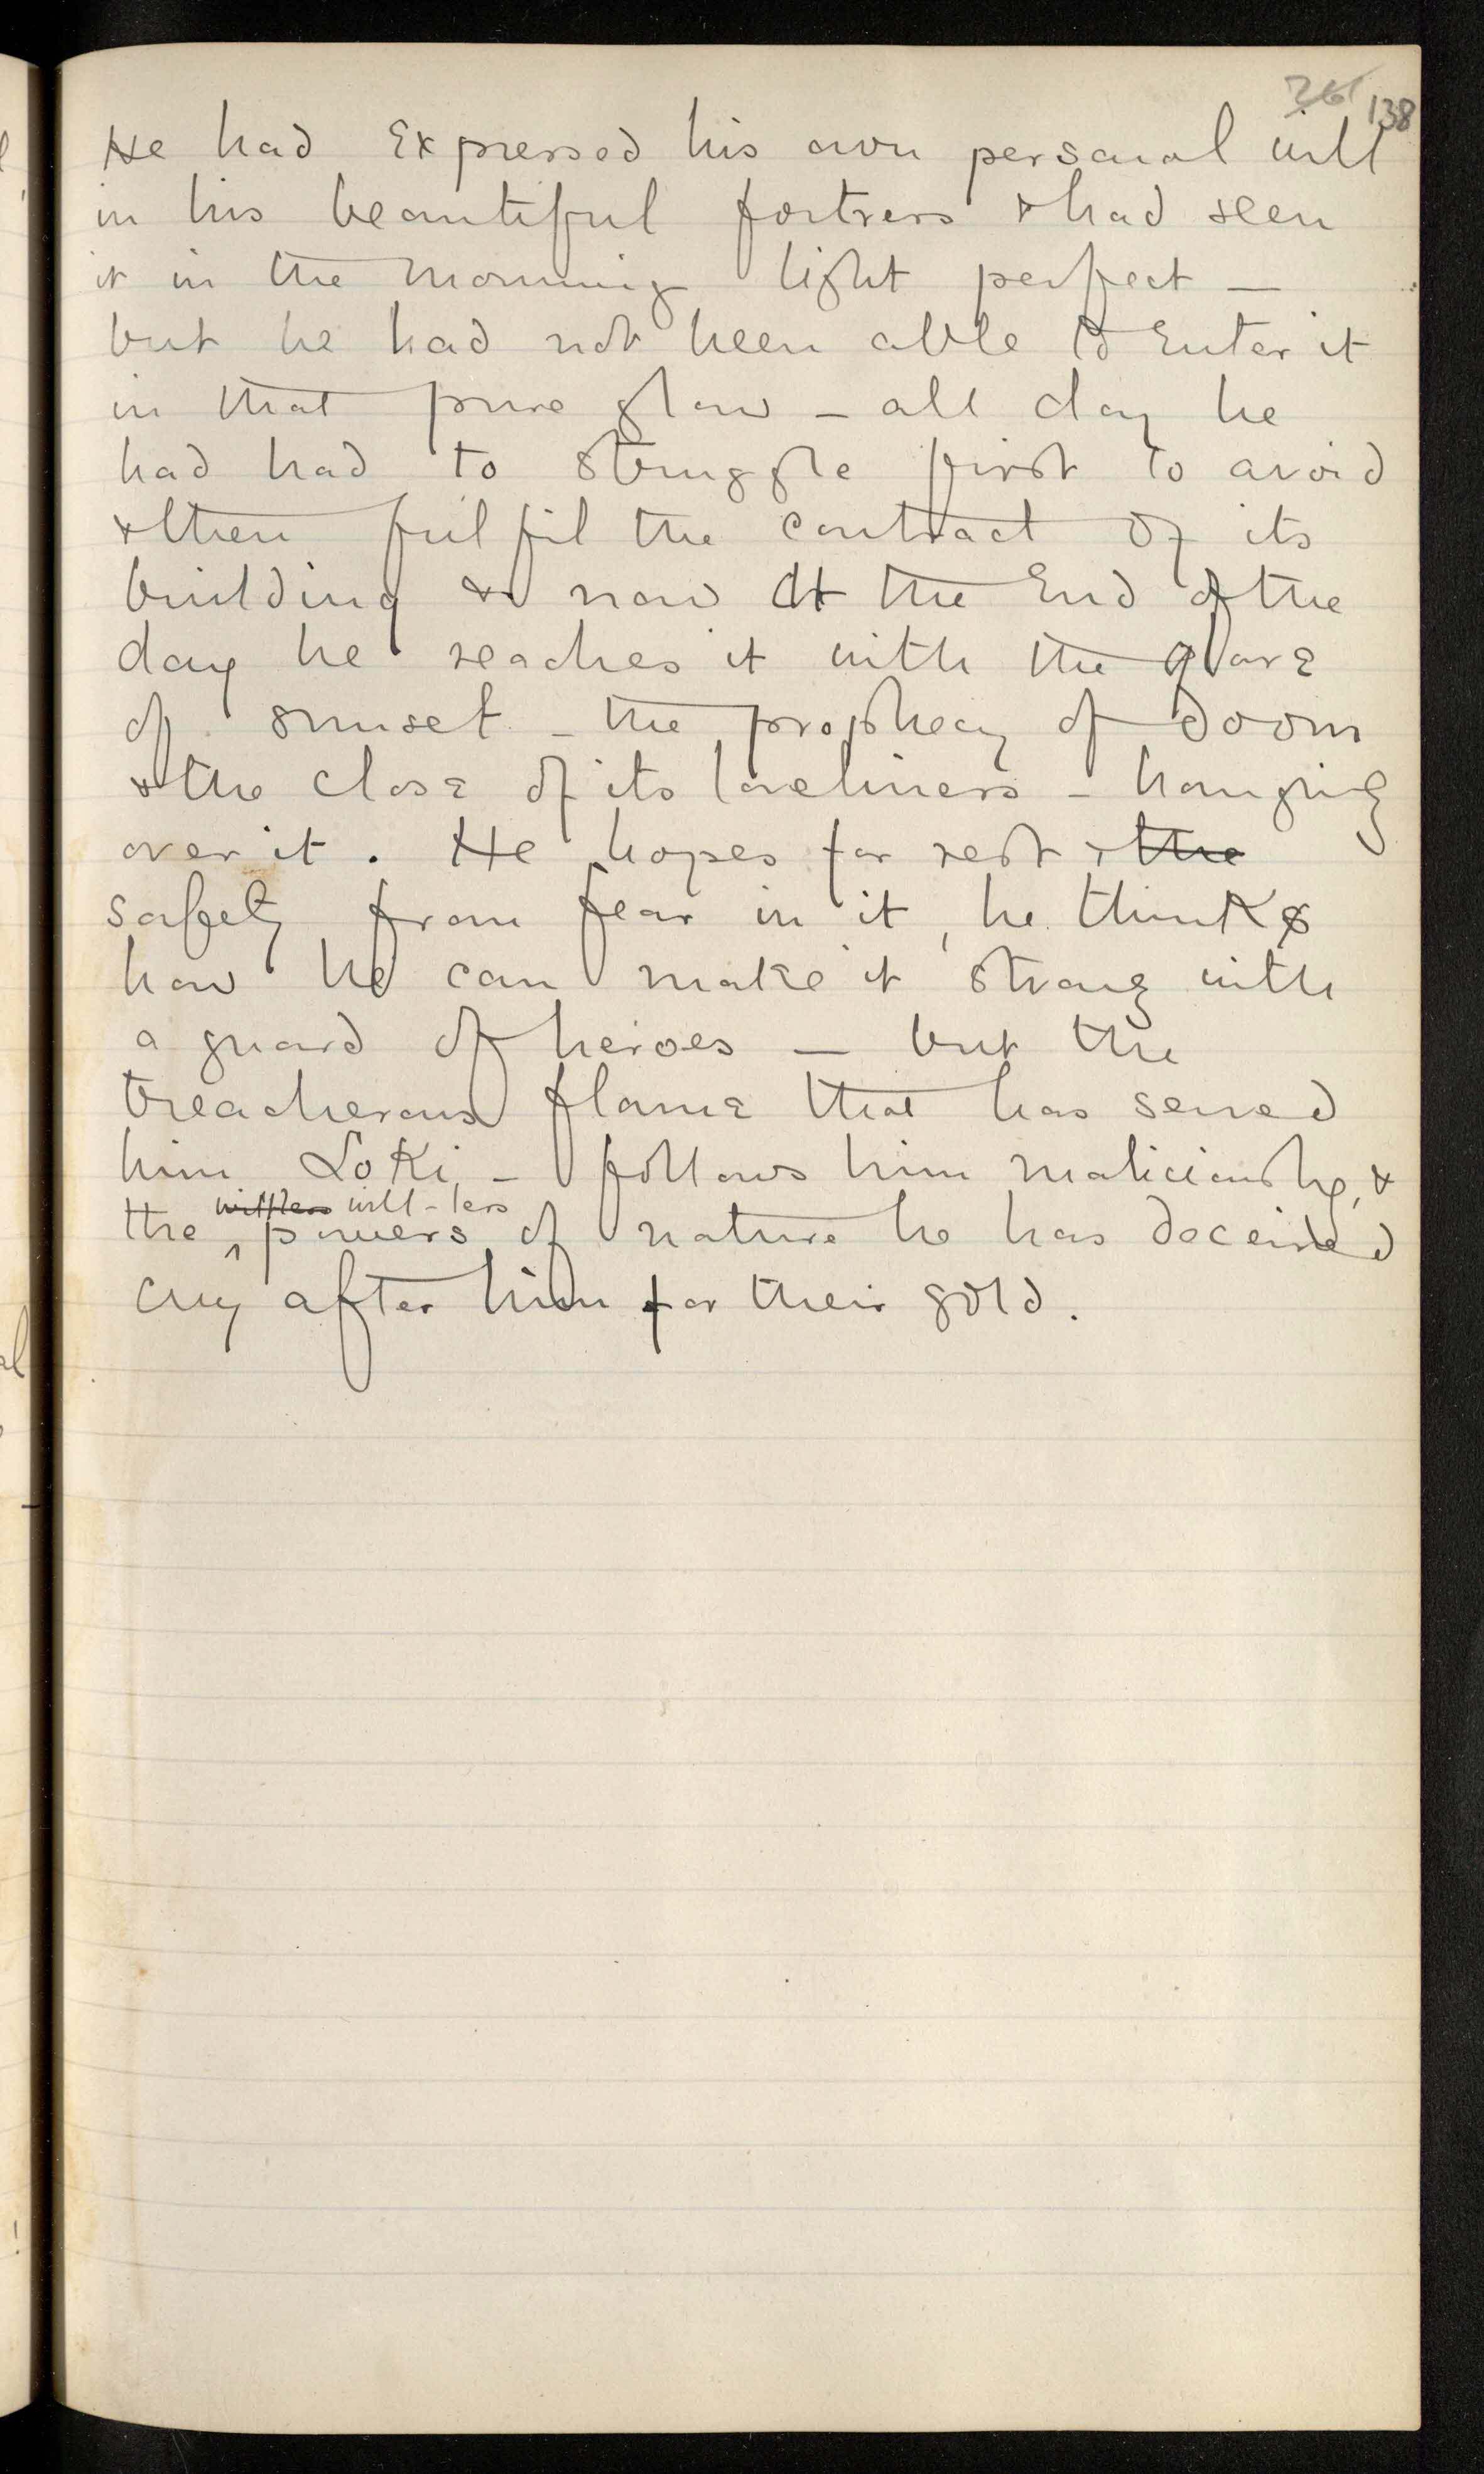 138
He had Expressed his own personal will
in his beautiful fortress & had seen
it in the morning light perfect —
but he had not been able to Enter it
in that pure glow — all day he
had had to struggle first to avoid
& then fulfil the contract of its
building & now at the End of the
day he reaches it with the glare
of sunset – the prophecy of doom
& the close of its loveliness – hanging
over it. He hopes for rest & the
safety from fear in it, he thinks
how he can make it strong with
a guard of heroes — but the
treacherous flame that has served
him Loki – follows him maliciously, &
willless will-less
the powers of nature he has deceived
cry after him for their gold.